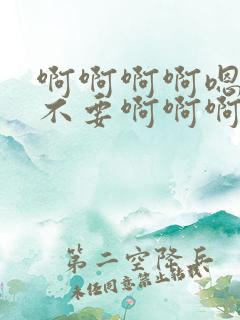 啊啊啊啊嗯
不要啊啊啊
第二空降兵
未经同意禁止转载